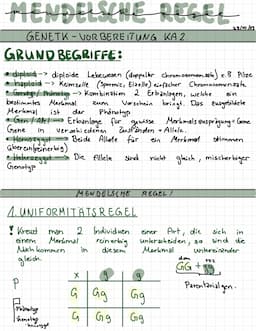 MENDELSCHE REGEL
GENETK-VORBEREITUNG KA2
GRUNDBEGRIFFE:
diploid → diploide Lebewesen (doppelter Chromosomensatz) z.B. Pilze
haploid → Keimzelle (Spermie, Eizelle) einfacher Chromosomensatz
→ Kombination 2 Erbanlagen, welche ein
bestimmtes Merkmal zum Vorschein bringt. Das ausgebildete
Merkmal ist der Phänotyp
Gen / → Erbanlage für gewisse Merkmalsausprägung = Gene
Gene in verschiedenen Zuständen = Allele.
Homozygot → Beide Allele für ein Merkmal stimmen
überein (reinerbig)
Heterozygot → Die Allele sind nicht gleich, mischerbiger
Genotyp
MENDELSCHE REGEL!
1. UNIFORMITÄTSREGEL
! Kreuzt man 2 Individuen einer Art, die sich in
einem Merkmal reinerbig unterscheiden, so sind die
Nachkommen in diesem Merkmal untereinander
gleich.
dom rez
GG + gg
Parentalgen.
P
x g g
G Gg Gg
G Gg Gg
Phänotyp
Genotyp